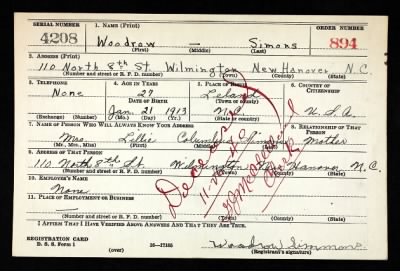 SERIAL NUMBER 1. NAME (Print) ORDER NUMBER
4208 Woodrow — Simons 894
(First) (Middle) (Last)
2. ADDRESS (Print)
110 North 8th St. Wilmington New Hanover N.C.
(Number and street or R. F. D. number) (Town) (County) (State)
3. TELEPHONE 4. AGE IN YEARS 5. PLACE OF BIRTH 6. COUNTRY OF CITIZENSHIP
None 27 Leland
DATE OF BIRTH (Town or county)
Jan. 21 1913 N.C. U.S.A.
(Exchange) (Number) (Mo.) (Day) (Yr.) (State or country)
7. NAME OF PERSON WHO WILL ALWAYS KNOW YOUR ADDRESS 8. RELATIONSHIP OF THAT PERSON
Mrs. Columbus Mother
(Mr., Mrs., Miss) (First) (Middle) (Last)
9. ADDRESS OF THAT PERSON
110 North 8th St. Wilmington New Hanover N.C.
(Number and street or R. F. D. number) (Town) (County) (State)
10. EMPLOYER'S NAME
None
11. PLACE OF EMPLOYMENT OR BUSINESS
—
(Number and street or R. F. D. number) (Town) (County) (State)
I AFFIRM THAT I HAVE VERIFIED ABOVE ANSWERS AND THAT THEY ARE TRUE.
REGISTRATION CARD
D. S. S. Form 1 (over) 16—17105 Woodrow Simmons
(Registrant's signature)
Deceased
Clerk